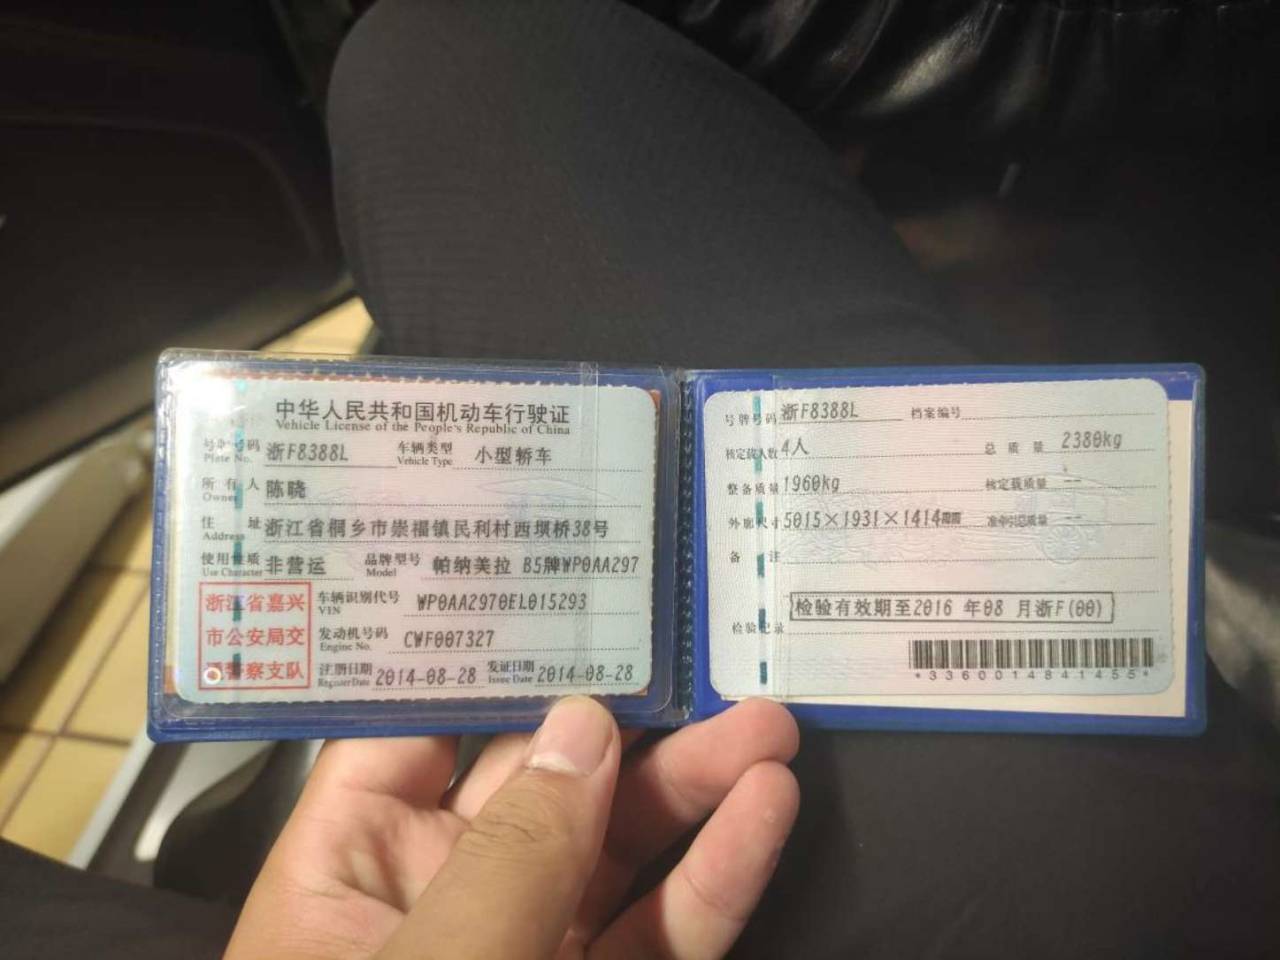 中华人民共和国机动车行驶证
Vehicle License of the People's Republic of China
号牌号码 浙F8388L 车辆类型 小型轿车
Plate No. Vehicle Type
所有人 陈晓
Owner
住址 浙江省桐乡市崇福镇民利村西坝桥38号
Address
使用性质 非营运 品牌型号 帕纳美拉 B5牌WP0AA297
Use Character Model
浙江省嘉兴
市公安局交
通警察支队
车辆识别代号 WP0AA2970EL015293
VIN
发动机号码 CWF007327
Engine No.
注册日期 2014-08-28 发证日期 2014-08-28
Register Date Issue Date
号牌号码 浙F8388L 档案编号
核定载人数 4人 总质量 2380kg
整备质量 1960kg 核定载质量 --
外廓尺寸 5015×1931×1414 准牵引总质量 --
备注
检验有效期至2016 年08 月浙F(00)
检验记录
*3360014841455*